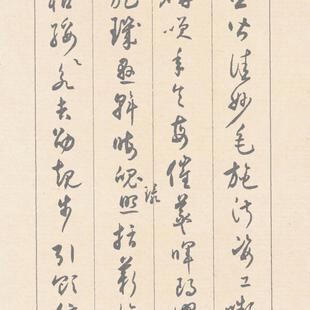 皆佳妙毛施淑姿工顰
笑年矢每催羲暉朗曜
璣懸斡晦魄環照指薪
綏永吉劭矩步引領